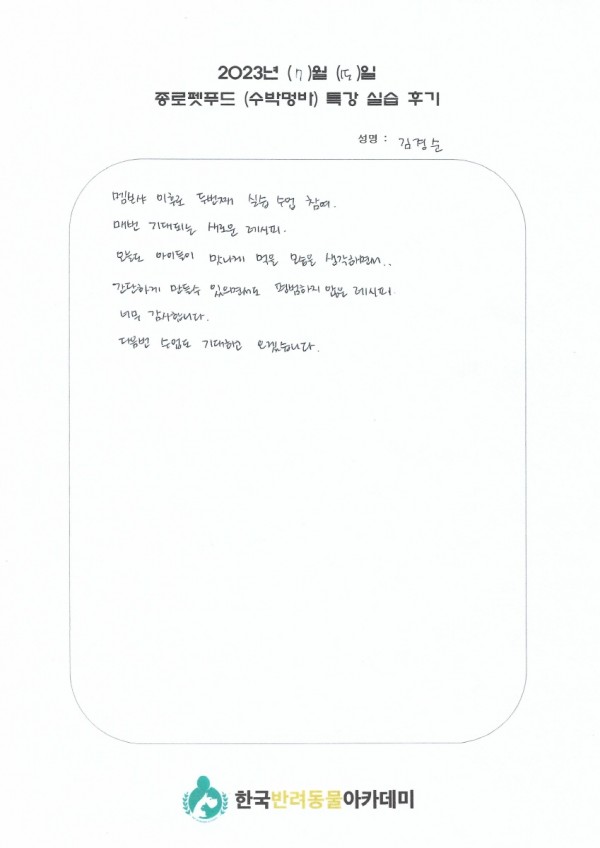 2023년 (7)월 (15)일
종로펫푸드 (수박멍바) 특강 실습 후기
성명 : 김경순
멤보샤 이후로 두번째 실습 수업 참여.
매번 기대되는 새로운 레시피.
오늘도 아이들이 맛나게 먹을 모습을 생각하면서..
간단하게 만들수 있으면서도 평범하지 않은 레시피.
너무 감사합니다.
다음번 수업도 기대하고 오겠습니다.
한국반려동물아카데미